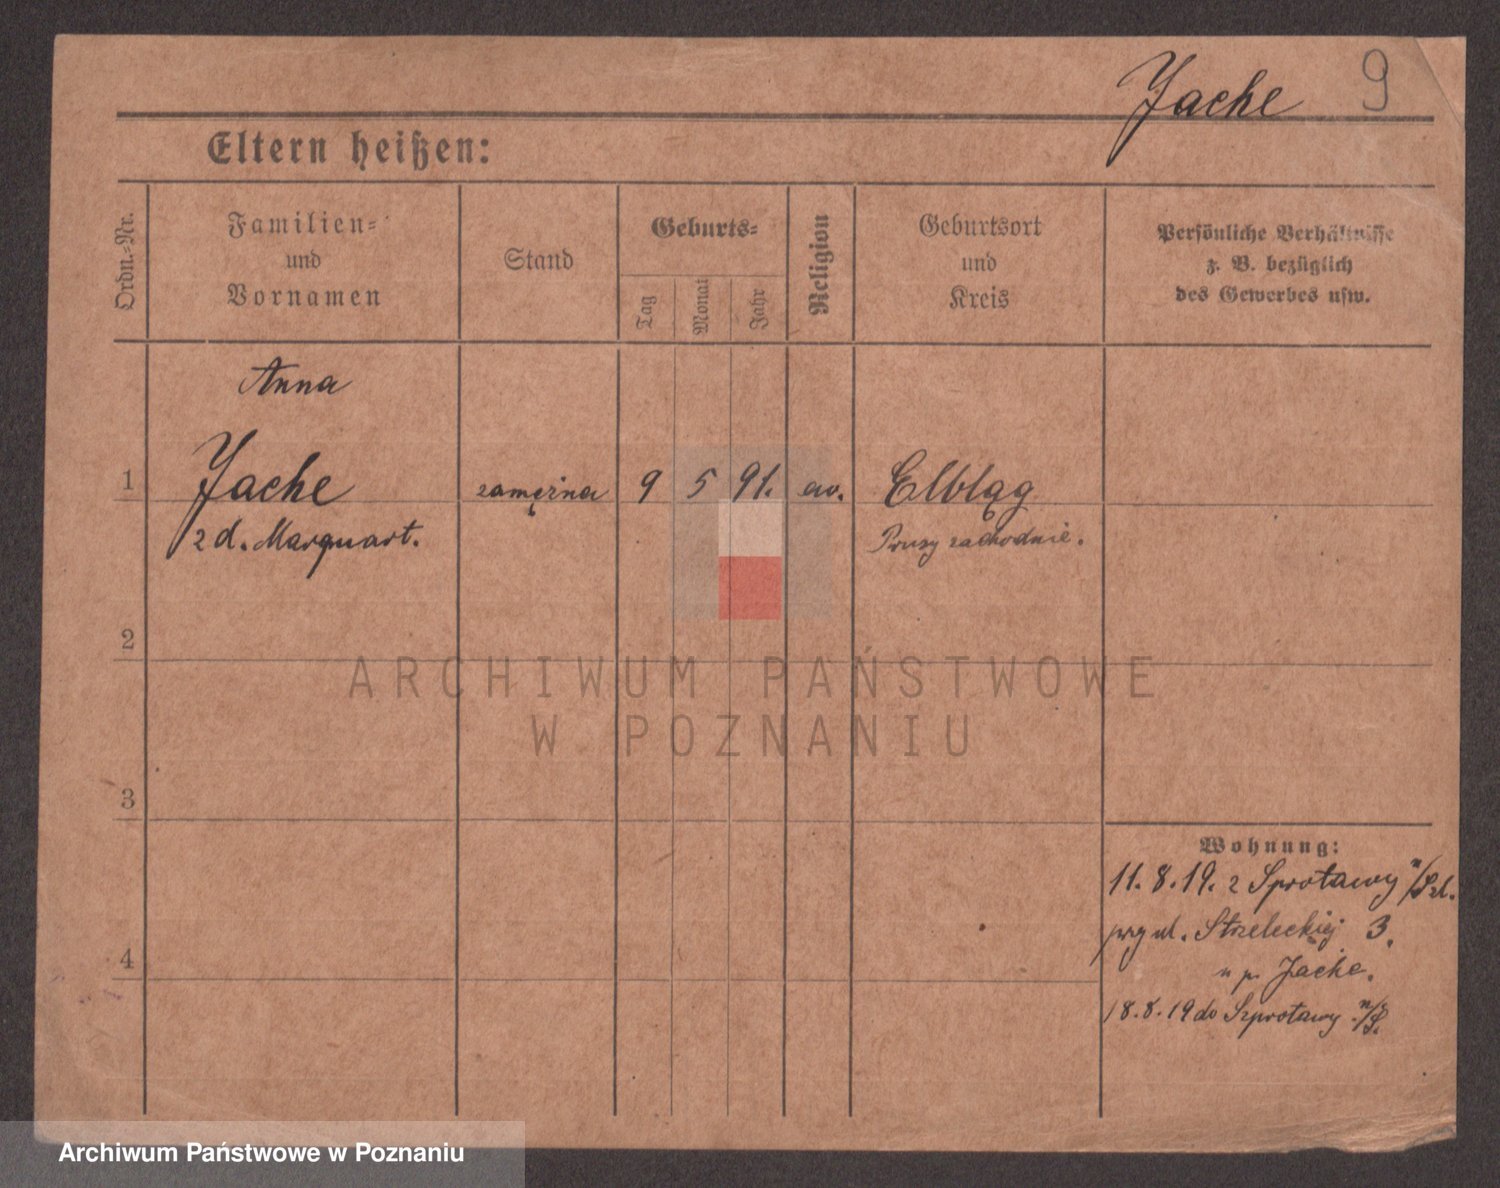 Jache 9
Eltern heißen:
Ordn.-Nr.
Familien-
und
Vornamen
Stand
Geburts-
Tag
Monat
Jahr
Religion
Geburtsort
und
Kreis
Persönliche Verhältnisse
z. B. bezüglich
des Gewerbes usw.
Anna
1 Jache zamężna 9 5 91. ew. Elbląg
z d. Marquart. Prusy zachodnie.
2
3
4
Wohnung:
11.8.19. z Sprotawy n/Szl.
ul. Strzeleckiej 3.
u p. Jache.
18.8.19 do Szprotawy n/Ś.
ARCHIWUM PAŃSTWOWE
W POZNANIU
Archiwum Państwowe w Poznaniu